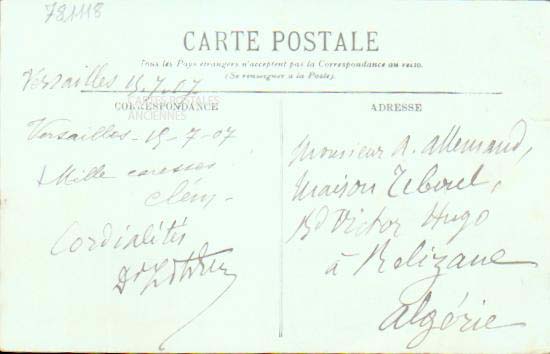 781118
CARTE POSTALE
Tous les Pays étrangers n'acceptent pas la Correspondance au recto.
(Se renseigner à la Poste).
Versailles 15.7.07
CORRESPONDANCE
CARTES POSTALES
ANCIENNES
Versailles-15-7-07
Mille caresses
Clém
Cordialités
ADRESSE
Monsieur A. Allemand,
Maison Teboul,
Bd Victor Hugo
à Relizane
Algérie